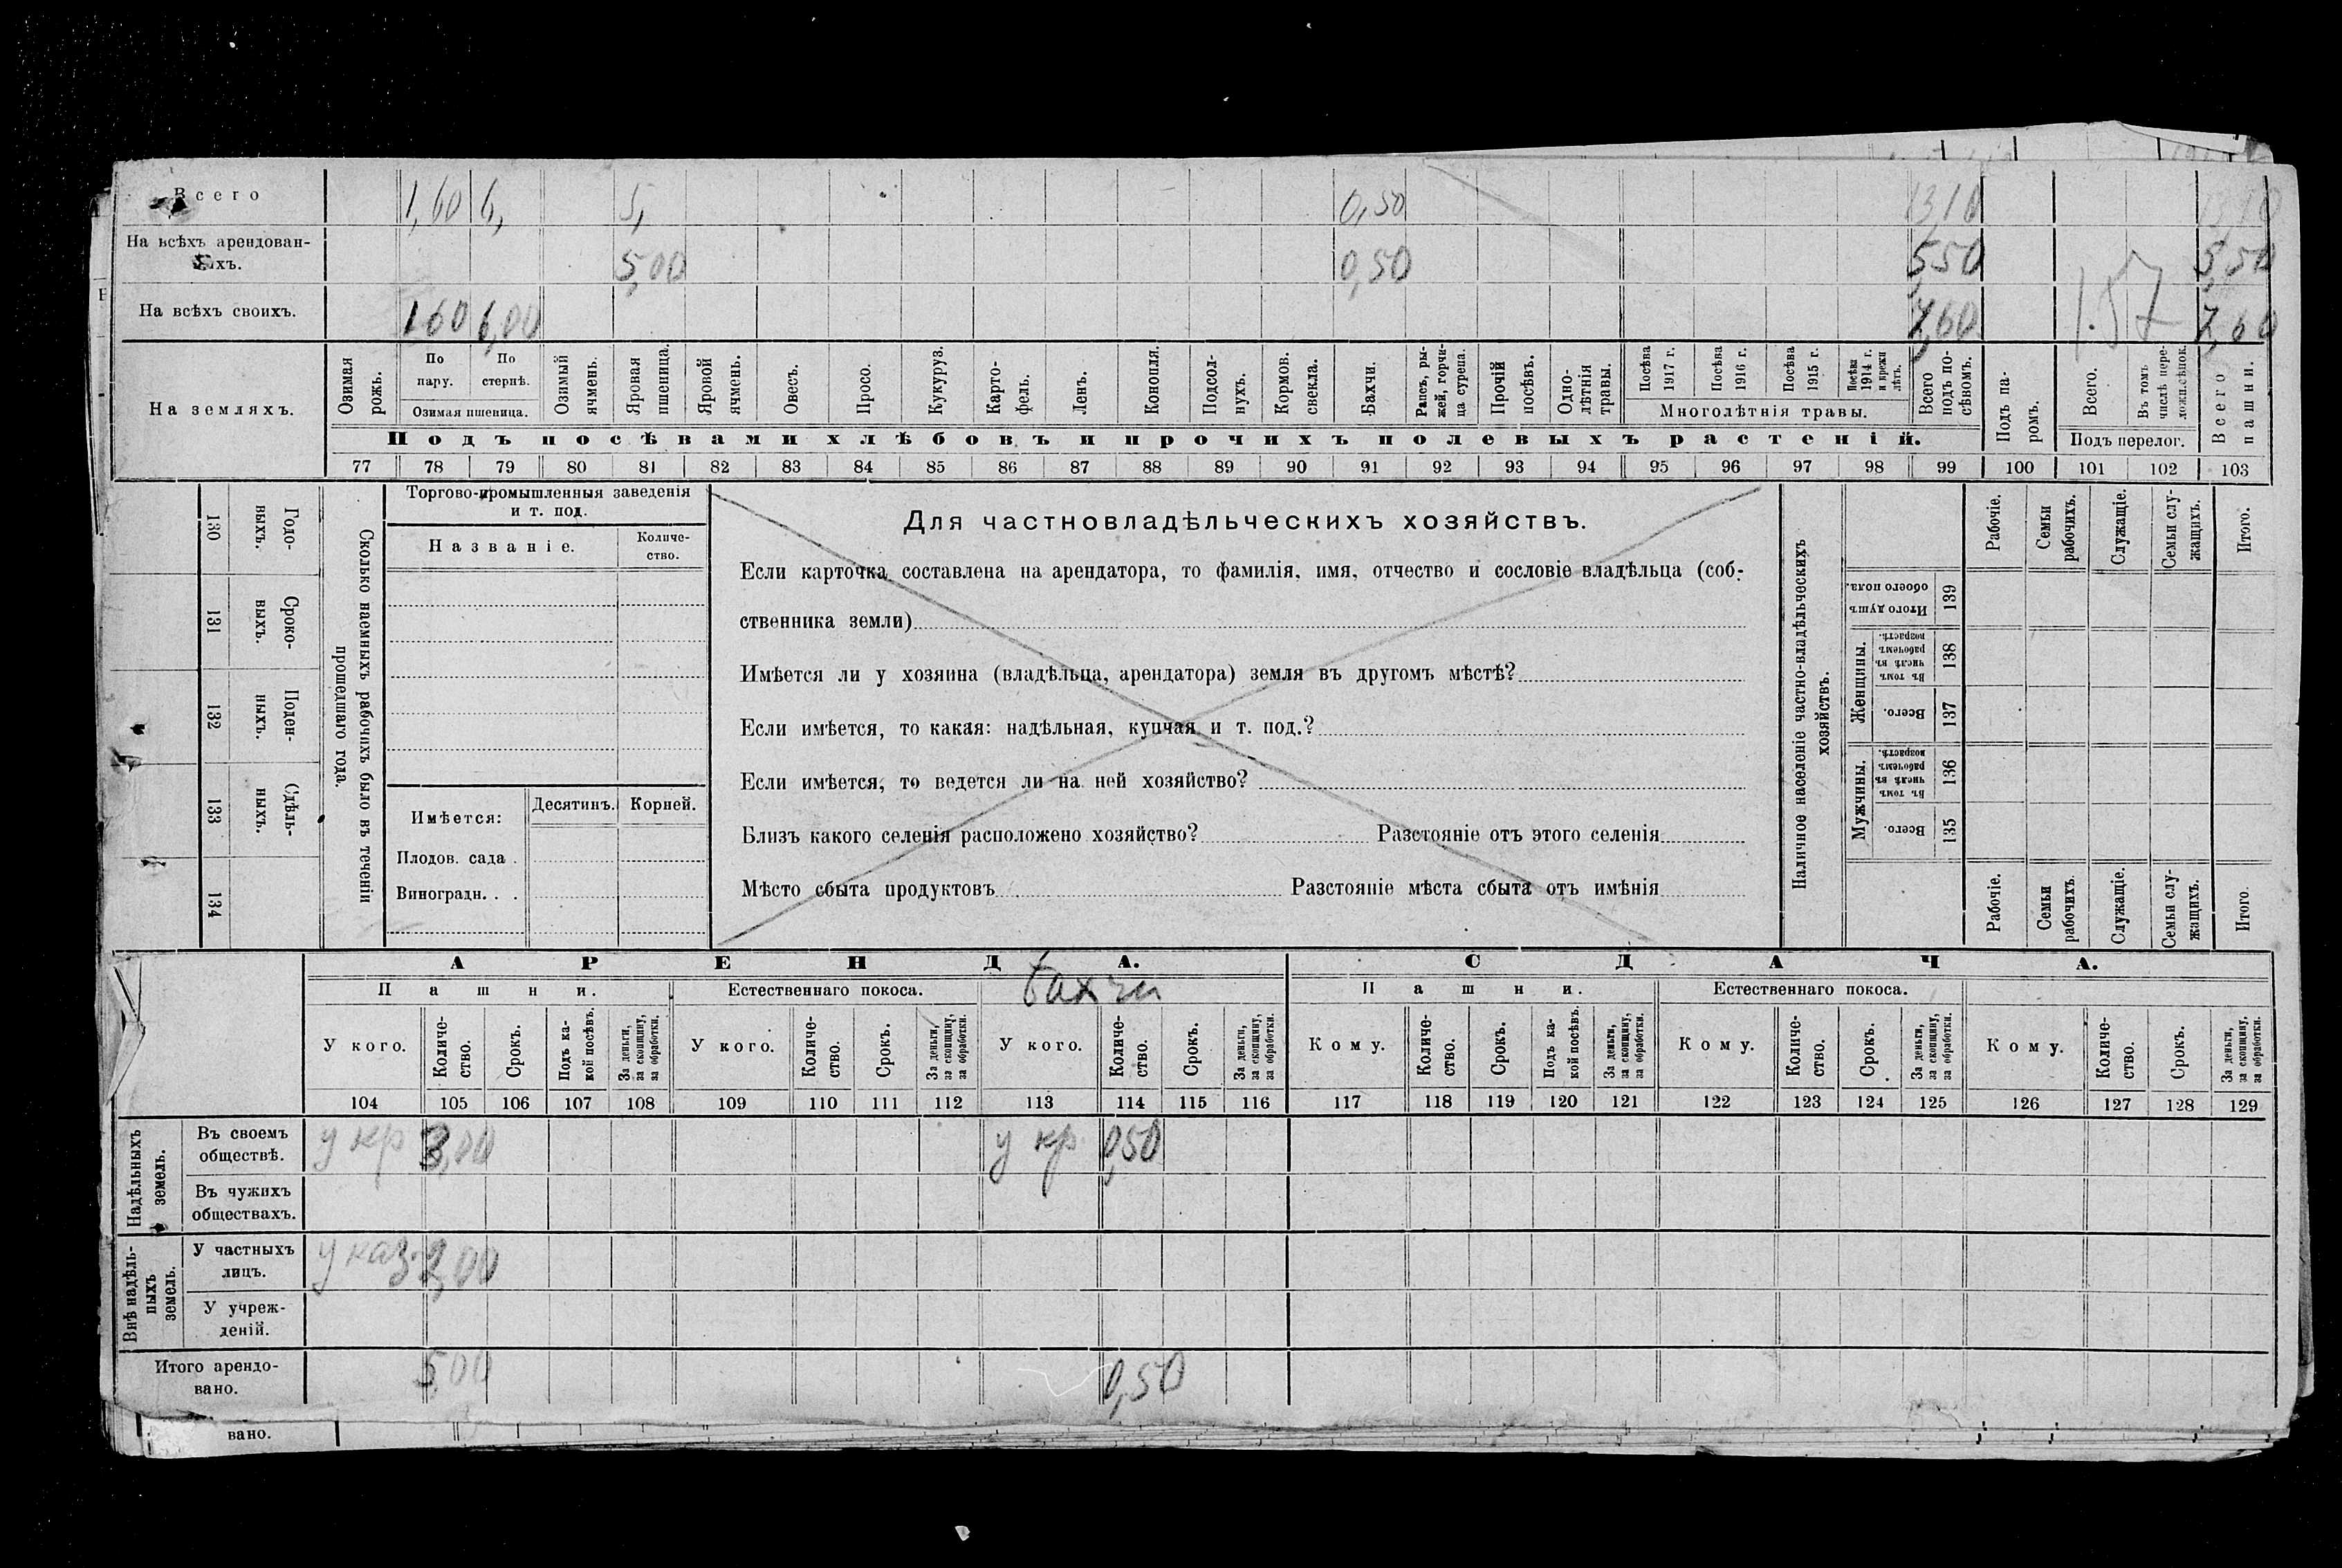 Всего 1,60 6, 5, 0,50 13,10 13,10
На всѣхъ арендован-
ныхъ. 5,00 0,50 5,50 5,50
На всѣхъ своихъ. 1 60 6,00 7,60 1.57 7,60
На земляхъ.
Озимая рожь.
По пару.
По стернѣ.
Озимая пшеница.
Озимый ячмень.
Яровая пшеница.
Яровой ячмень.
Овесъ.
Просо.
Кукуруз.
Карто-
фель.
Ленъ.
Конопля.
Подсол-
нухъ.
Кормов. свекла.
Бахчи.
Рапсъ, ры-
жей, горчи-
ца сурепа.
Прочій посѣвъ.
Одно-
лѣтнія травы.
Посѣва 1917 г.
Посѣва 1916 г.
Посѣва 1915 г.
Посѣва 1914 г.
и прежн лѣтъ.
Многолѣтнія травы.
Всего подъ по-
сѣвомъ.
Подъ па-
ромъ.
Всего.
Въ томъ числѣ пере-
Подъ перелог.
Всего пашни.
Подъ посѣвами хлѣбовъ и прочихъ полевыхъ растеній.
77 78 79 80 81 82 83 84 85 86 87 88 89 90 91 92 93 94 95 96 97 98 99 100 101 102 103
130 Годо-
ныхъ.
131 Сроко-
ныхъ.
132 Поден-
ныхъ.
133 Сдѣль-
ныхъ.
134
Сколько наемныхъ рабочихъ было въ теченіи
прошедшаго года.
Торгово-промышленныя заведенія
и т. под.
Названіе.
Количе-
ство.
Имѣется:
Десятинъ. Корней.
Плодов. сада .
Виноградн. . .
Для частновладѣльческихъ хозяйствъ.
Если карточка составлена на арендатора, то фамилія, имя, отчество и сословіе владѣльца (соб-
ственника земли)
Имѣется ли у хозяина (владѣльца, арендатора) земля въ другомъ мѣстѣ?
Если имѣется, то какая: надѣльная, купчая и т. под.?
Если имѣется, то ведется ли на ней хозяйство?
Близъ какого селенія расположено хозяйство? Разстояніе отъ этого селенія
Мѣсто сбыта продуктовъ Разстояніе мѣста сбыта отъ имѣнія
Наличное населеніе частно-владѣльческихъ
хозяйствъ.
Рабочіе.
Семьи рабочихъ.
Служащіе.
Семьи слу-
жащихъ.
Итого.
Итого душъ обоего пола. 139
Женщины.
Въ томъ числѣ въ рабочемъ возрастѣ. 138
Всего. 137
Мужчины.
Въ томъ числѣ въ рабочемъ возрастѣ. 136
Всего. 135
Рабочіе.
Семьи рабочихъ.
Служащіе.
Семьи слу-
жащихъ.
Итого.
АРЕНДА. СДАЧА.
Пашни. Естественнаго покоса. бахчи Пашни. Естественнаго покоса.
У кого.
Количе-
ство.
Срокъ.
Подъ ка-
кой посѣвъ.
За деньги,
за скопщину,
за обработки.
У кого.
Количе-
ство.
Срокъ.
За деньги,
за скопщину,
за обработки.
У кого.
Количе-
ство.
Срокъ.
За деньги,
за скопщину,
за обработки.
Кому.
Количе-
ство.
Срокъ.
Подъ ка-
кой посѣвъ.
За деньги,
за скопщину,
за обработки.
Кому.
Количе-
ство.
Срокъ.
За деньги,
за скопщину,
за обработки.
Кому.
Количе-
ство.
Срокъ.
За деньги,
за скопщину,
за обработки.
104 105 106 107 108 109 110 111 112 113 114 115 116 117 118 119 120 121 122 123 124 125 126 127 128 129
Надѣльныхъ земель.
Въ своемъ
обществѣ. у кр 3,00 у кр 0,50
Въ чужихъ
обществахъ.
Внѣ надѣль-
ныхъ земель.
У частныхъ
лицъ. у каз. 2,00
У учреж-
деній.
Итого арендо-
вано. 5,00 0,50
вано.